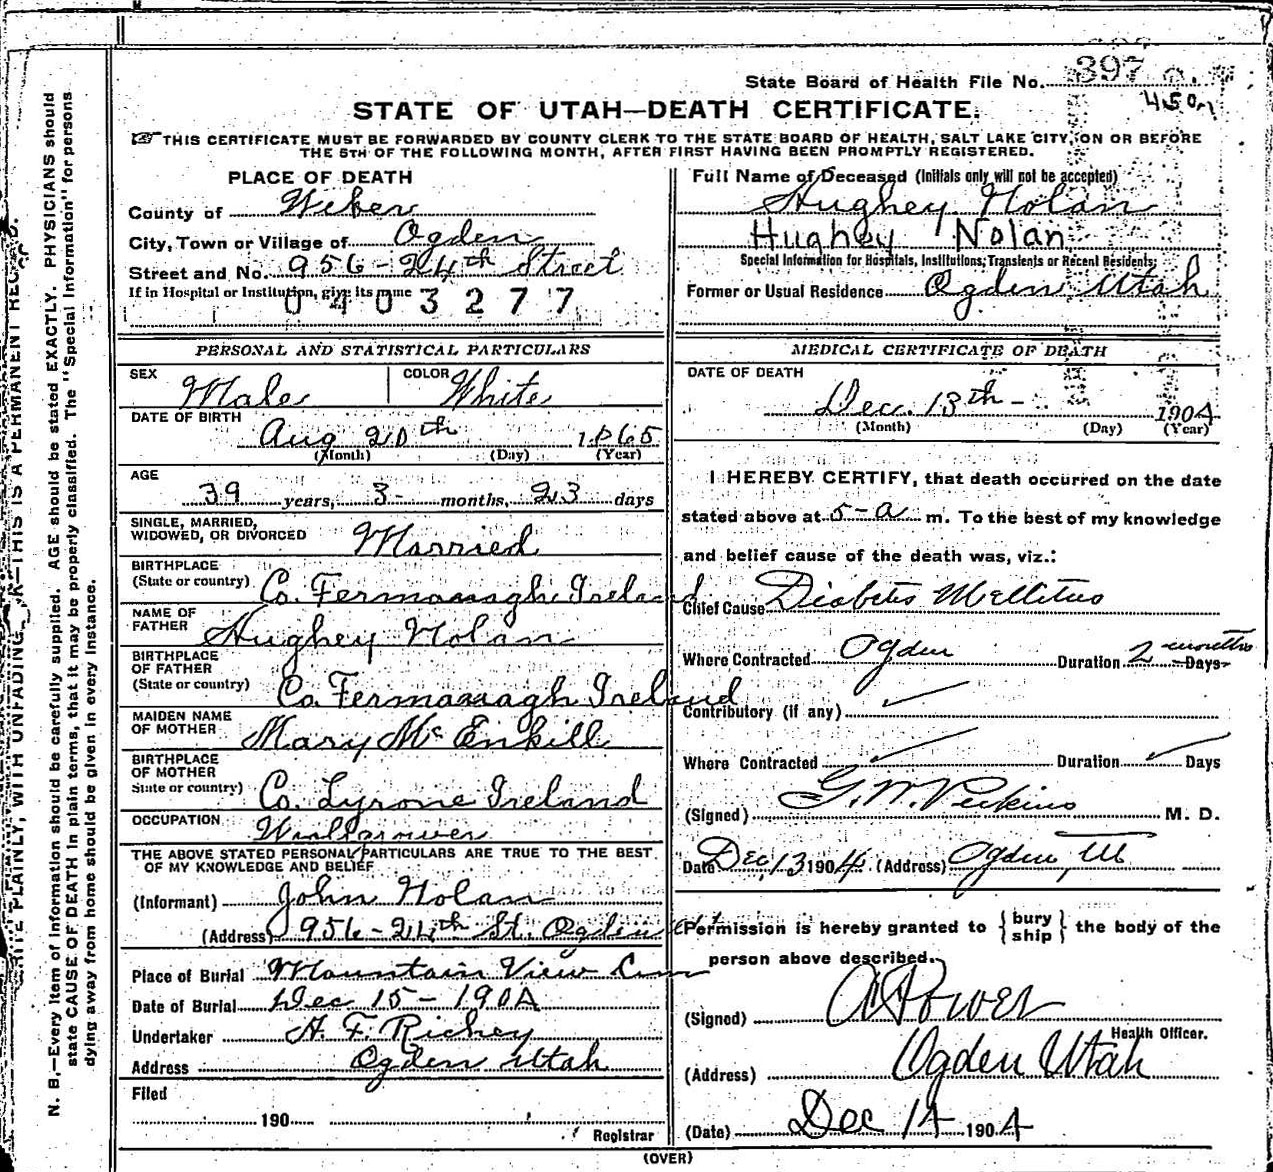 State Board of Health File No. 397
450m
STATE OF UTAH—DEATH CERTIFICATE.
☞ THIS CERTIFICATE MUST BE FORWARDED BY COUNTY CLERK TO THE STATE BOARD OF HEALTH, SALT LAKE CITY, ON OR BEFORE
THE 5TH OF THE FOLLOWING MONTH, AFTER FIRST HAVING BEEN PROMPTLY REGISTERED.
PLACE OF DEATH
County of Weber
City, Town or Village of Ogden
Street and No. 956 - 24th Street
If in Hospital or Institution, give its name
0403277
Full Name of Deceased (Initials only will not be accepted)
Hughey Nolan
Hughey Nolan
Special Information for Hospitals, Institutions, Transients or Recent Residents:
Former or Usual Residence Ogden Utah
PERSONAL AND STATISTICAL PARTICULARS
SEX Male COLOR White
DATE OF BIRTH
Aug 20th 1865
(Month) (Day) (Year)
AGE
39 years, 3 - months, 23 days
SINGLE, MARRIED,
WIDOWED, OR DIVORCED Married
BIRTHPLACE
(State or country) Co. Fermanagh Ireland
NAME OF
FATHER Hughey Nolan
BIRTHPLACE
OF FATHER
(State or country) Co. Fermanagh Ireland
MAIDEN NAME
OF MOTHER Mary Mc Enkill
BIRTHPLACE
OF MOTHER
State or country) Co. Tyrone Ireland
OCCUPATION
THE ABOVE STATED PERSONAL PARTICULARS ARE TRUE TO THE BEST
OF MY KNOWLEDGE AND BELIEF
(Informant) John Nolan
(Address) 956 - 24th St. Ogden Ut
Place of Burial Mountain View Cem
Date of Burial Dec 15 - 1904
Undertaker A. F. Richey
Address Ogden Utah
Filed
190
Registrar
MEDICAL CERTIFICATE OF DEATH
DATE OF DEATH
Dec. 13th - 1904
(Month) (Day) (Year)
I HEREBY CERTIFY, that death occurred on the date
stated above at 5 - a m. To the best of my knowledge
and belief cause of the death was, viz.:
Chief Cause Diabetis Mellitus
Where Contracted Ogden Duration 2 months Days
Contributory (if any)
Where Contracted Duration Days
(Signed) G. W. Perkins M. D.
Date Dec, 13 1904 (Address) Ogden, Ut
Permission is hereby granted to { bury ship } the body of the
person above described.
(Signed) A Power
Health Officer.
(Address) Ogden Utah
(Date) Dec 14 1904
(OVER)
N. B.—Every item of information should be carefully supplied. AGE should be stated EXACTLY. PHYSICIANS should
state CAUSE OF DEATH in plain terms, that it may be properly classified. The "Special Information" for persons
dying away from home should be given in every instance.
PLAINLY, WITH UNFADING THIS IS A PERMANENT